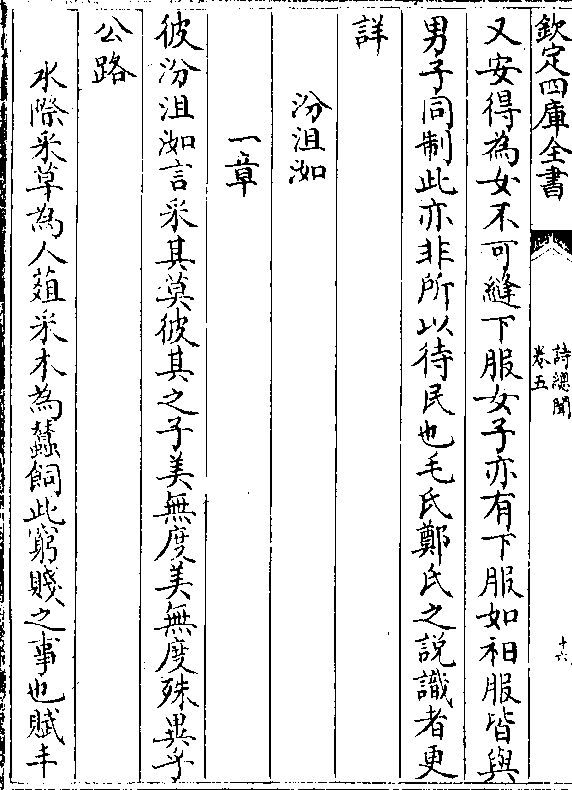 欽定四庫全書
詩總聞
卷五
十六
又安得為女不可縫下服女子亦有下服如衵服皆與
男子同制此亦非所以待民也毛氏鄭氏之説識者更
詳
汾沮洳
一章
彼汾沮洳言采其莫彼其之子美無度美無度殊異乎
公路
水際采草為人葅采木為蠶飼此窮賤之事也賦丰